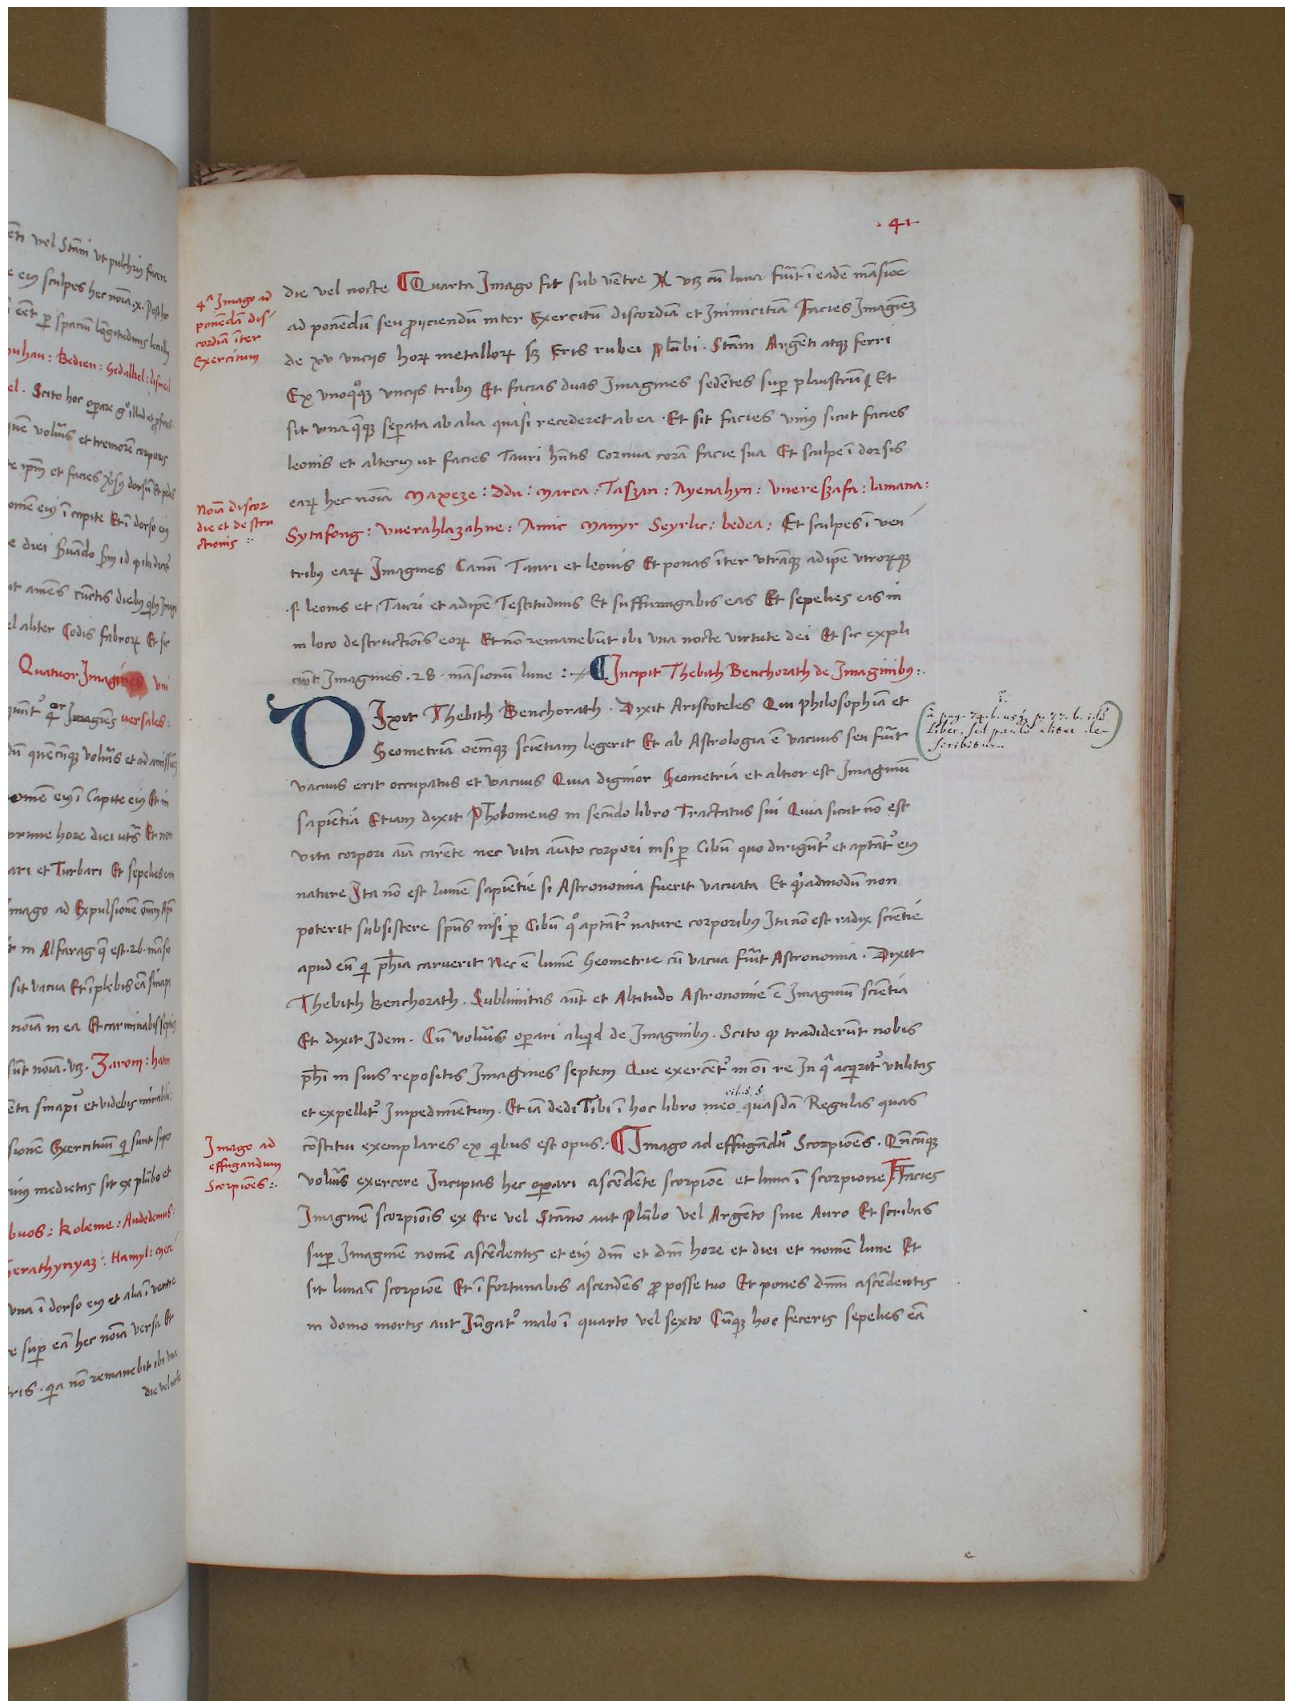 eti vel Stam̄ ut pulchrius fuerit
eius sculpes hec noīa .x. Post hoc
eēt p̱ spaciū longitudinis
puhau : Bedien : Sedalhel :
el . Scito hoc operare
quē volūis et tremorē corporis
ip̄m et facies dorsū
nomē eius ī capite Et ī dorso eius
diei
ut amēs cūctis diebus
el aliter Codis fabroꝝ Et sic
Quatuor Imagines uni
versales :
dū quēcūqꝫ volūis et ad
nomē eius ī Capite eius Et in
prime hore diei Et non
ari et Turbari Et sepelies eam
imago ad Expulsionē
in Alfarag q̄ est .26. māsio
sit vacua Et īplebis eā sīapi
noīa in ea Et carminabis septies
sūt noīa .vꝫ. Zarom : ham
sīnapi et videbis mirabilia
sionē Exercituū qui sunt supra
eius medietas sit ex plūbo et
buos : Koleme : Andedemus :
Gerathynyaz : Hamyl :
una ī dorso eius et alia ī ventre
sup̱ eā hec noīa versa Et
ris . quia nō remanebit ibi una
die vel nocte
. 41
4ᵃ Imago ad
ponēdā dis-
cordiā īter
Exercitum
die vel nocte ¶ Quarta Imago fit sub vētre vꝫ cū luna fūit ī eadē māsiōe
ad ponēdū seu ꝓiiciendū inter Exercitū discordiā et Inimicitiā Facies Imaginē
de xv unciis horꝝ metallorꝝ sꝫ Eris rubei plūbi . Stām Argēti atqꝫ ferri
Ex unoqºqꝫ unciis tribus Et facias duas Imagines sedētes sup̱ plaustrū Et
sit una q̄qꝫ sep̱ata ab alia quasi recederet ab ea . Et sit facies unius sicut facies
leonis et alterius ut facies Tauri hn̄tis cornua corā facie sua Et sculpe ī dorsis
Noīa discor
die et destru
ctionis :
earꝝ hec noīa Maxeze : Ddu : Marca : Taſzan : Ayenahyn : Unereſzafa : lamana :
Sytafong : Unerahlazahne : Amic Manyr Seyrlic : bedea : Et sculpes ī ven
tribus earꝝ Imagines Canū Tauri et leonis Et ponas īter utrāqꝫ adipē utrorꝝqꝫ
.s. leonis et Tauri et adipē Testitudinis Et suffumigabis eas Et sepelies eas in
in loco destructiōis eorꝝ Et nō remanebūt ibi una nocte virtute dei Et sic expli
ciūt Imagines .28. māsionū lune : ¶ Incipit Thebith Benchorath de Imaginibus :.
DIxit Thebith Benchorath . Dixit Aristoteles Qui philosophiā et
Geometriā oēmqꝫ scīentiam legerit Et ab Astrologia ē vacuus seu fūit
Liber, sed paulo aliter de-
scribitur.
vacuus erit occupatus et vacuus Quia dignior Geometria et altior est Imaginū
sapiētia Etiam dixit Ptholomeus in secūdo libro Tractatus sui Quia sicut nō est
vita corpori aīa carēte nec vita aīato corpori nisi p̱ Cibū quo dirigūtᵘʳ et aptātᵘʳ eius
nature Ita nō est lumē sapiētie si Astronomia fuerit vacuata Et quēadmodū non
poterit subsistere sp̄us nisi p̱ Cibū qº aptātᵘʳ nature corporibus Ita nō est radix scīētie
apud eū qui ph̄ia caruerit Nec ē lumē Geometrie cū vacua fūit Astronomia . Dixit
Thebith Benchorath . Sublimitas aūt et Altitudo Astronomie ē Imaginū scīētia
Et dixit Idem . Cū volūis oꝑari aliquid de Imaginibus . Scito ꝙ tradiderūt nobis
ph̄i in suis repositis Imagines septem Que exercētᵘʳ in oī re In qua acquiritᵘʳ utilitas
et expellitᵘʳ Impedimētum . Et iā dedi Tibi ī hoc libro meo quasdā Regulas quas
Imago ad
effugandum
Scorpiōes :.
cōstitui exemplares ex quibus est opus :. ¶ Imago ad effugādū Scorpiōes . Qn̄cūqꝫ
volūis exercere Incipias hec oꝑari ascēdēte scorpiōe et luna ī scorpione Facies
Imaginē scorpiōis ex Ere vel Stāno aut Plūbo vel Argēto sive Auro Et scribas
sup̱ Imaginē nomē ascēdentis et eius dn̄m et dn̄m hore et diei et nomē lune Et
sit luna ī scorpiōe Et īfortunabis ascendēs ꝓ posse tuo Et pones dn̄m ascēdentis
in domo mortis aut Iūgatᵘʳ malo ī quarto vel sexto Cūqꝫ hoc feceris sepelies eā
e